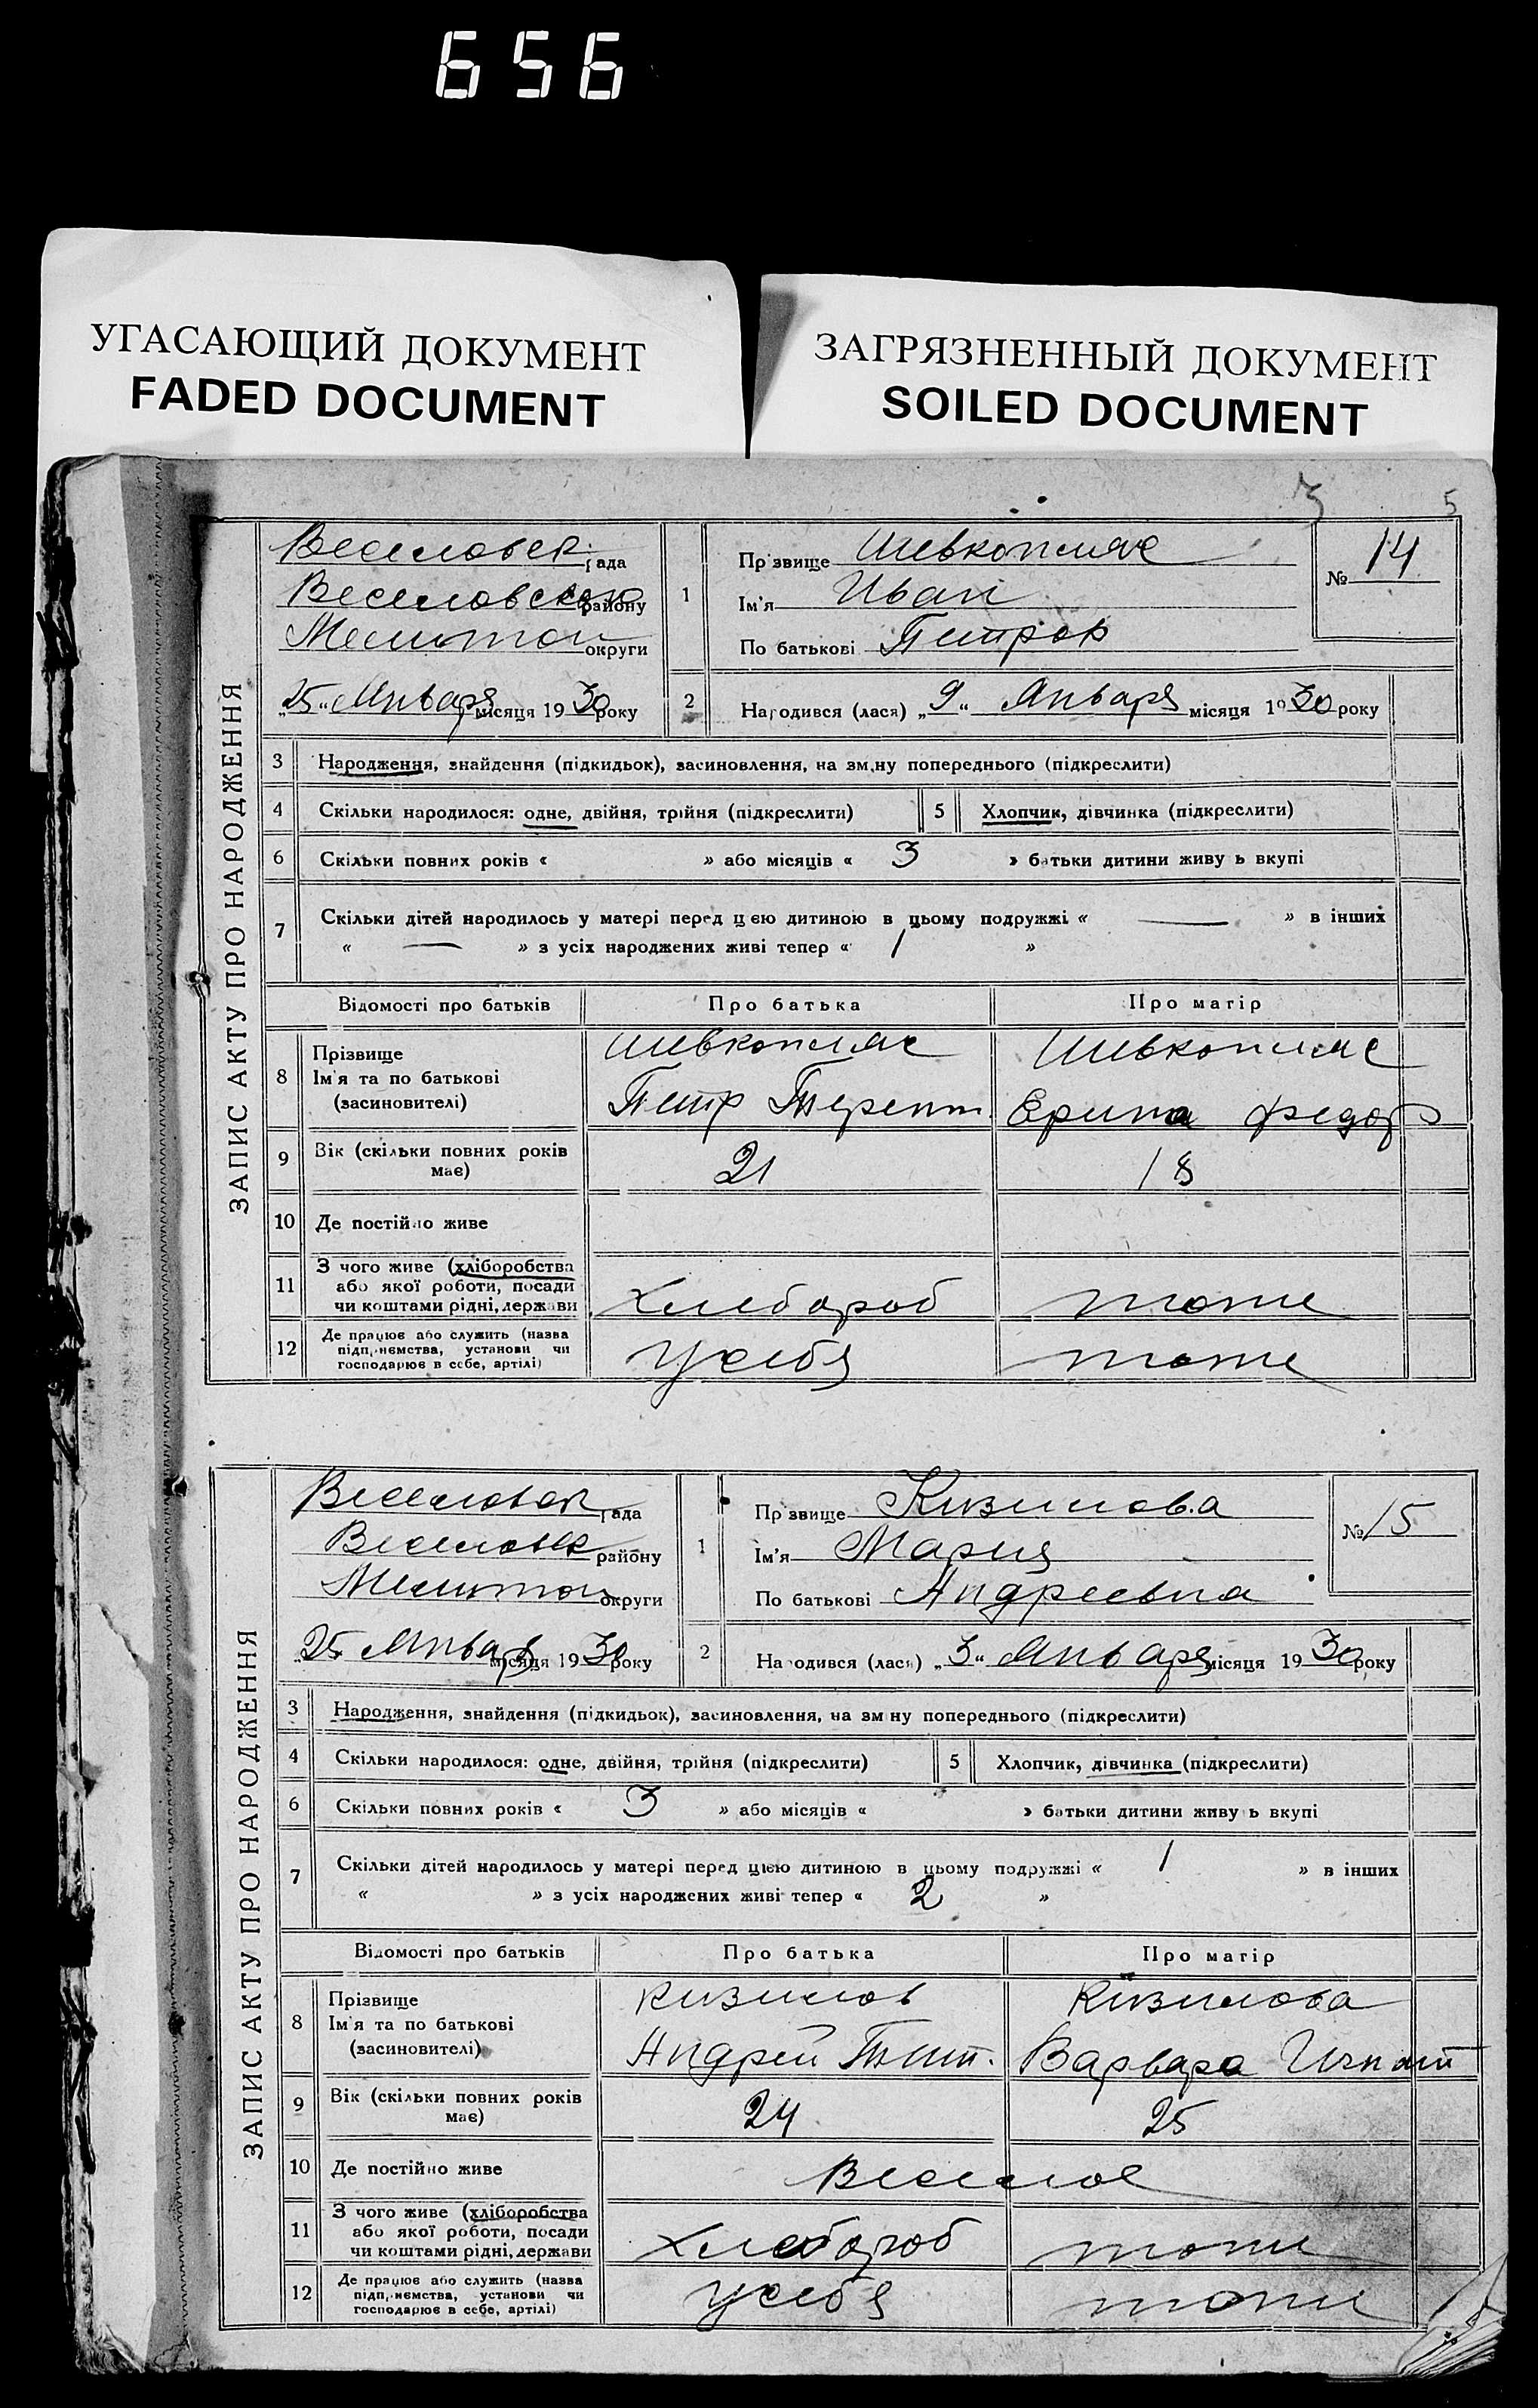 656
УГАСАЮЩИЙ ДОКУМЕНТ
FADED DOCUMENT
ЗАГРЯЗНЕННЫЙ ДОКУМЕНТ
SOILED DOCUMENT
5
ЗАПИС АКТУ ПРО НАРОДЖЕННЯ
Веселовск рада
Веселовского району
Мелитоп округи
„25“ Января місяця 1930 року
1
Прізвище Шевкопляс
Ім'я Иван
По батькові Петров
№ 14
2 Народився (лася) „9“ Января місяця 1930 року
3 Народження, знайдення (підкидьок), засиновлення, на зміну попереднього (підкреслити)
4 Скільки народилося: одне, двійня, трійня (підкреслити)
5 Хлопчик, дівчинка (підкреслити)
6 Скільки повних років « » або місяців « 3 » батьки дитини живуть вкупі
7 Скільки дітей народилось у матері перед цією дитиною в цьому подружжі « — » в інших
« — » з усіх народжених живі тепер « 1 »
Відомості про батьків Про батька Про матір
8 Прізвище Шевкопляс Шевкопляс
Ім'я та по батькові
(засиновителі) Петр Терент. Ерина Федор
9 Вік (скільки повних років має) 21 18
10 Де постійно живе
11 З чого живе (хліборобства
або якої роботи, посади
чи коштами рідні, держави Хлебороб тоже
12 Де працює або служить (назва
підприємства, установи чи
господарює в себе, артілі) У себя тоже
ЗАПИС АКТУ ПРО НАРОДЖЕННЯ
Веселовск рада
Веселовск району
Мелитоп округи
„25“ Января місяця 1930 року
1
Прізвище Кизилова
Ім'я Мария
По батькові Андреевна
№ 15
2 Народився (лася) „3“ Января місяця 1930 року
3 Народження, знайдення (підкидьок), засиновлення, на зміну попереднього (підкреслити)
4 Скільки народилося: одне, двійня, трійня (підкреслити)
5 Хлопчик, дівчинка (підкреслити)
6 Скільки повних років « 3 » або місяців « » батьки дитини живуть вкупі
7 Скільки дітей народилось у матері перед цією дитиною в цьому подружжі « 1 » в інших
« » з усіх народжених живі тепер « 2 »
Відомості про батьків Про батька Про матір
8 Прізвище Кизилов Кизилова
Ім'я та по батькові
(засиновителі) Андрей Тит. Варвара Игнат
9 Вік (скільки повних років має) 24 25
10 Де постійно живе Веселое
11 З чого живе (хліборобства
або якої роботи, посади
чи коштами рідні, держави Хлебороб тоже
12 Де працює або служить (назва
підприємства, установи чи
господарює в себе, артілі) У себя тоже